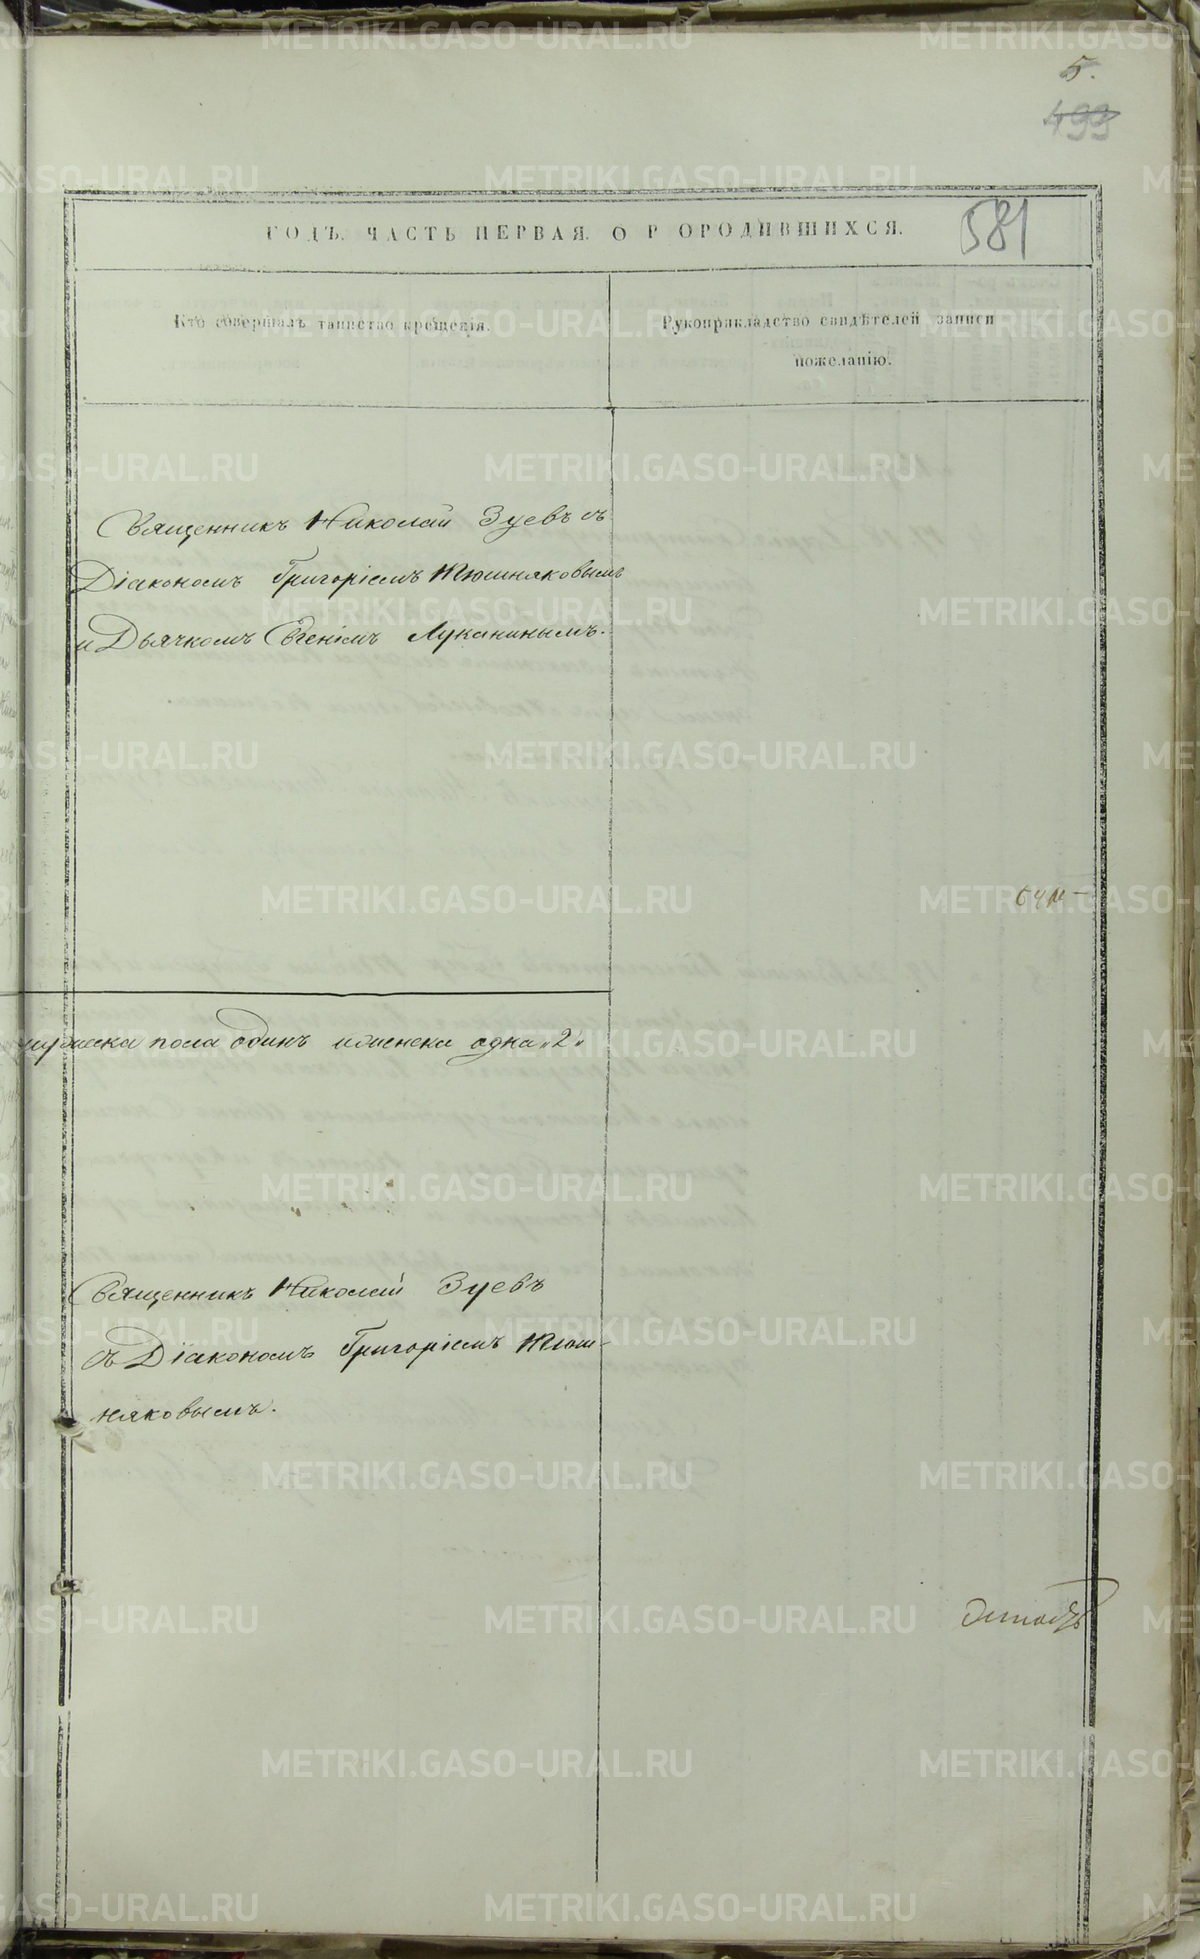 5.
499
581
ГОДЪ. ЧАСТЬ ПЕРВАЯ. О Р ОРОДИВШИХСЯ.
Кто совершалъ таинство крещенія.
Рукоприкладство свидѣтелей записи
пожеланію.
Священникъ Николай Зуевъ съ
Діакономъ Григоріемъ Тюшняковымъ
и Дьячкомъ Евгеніемъ Луканинымъ.
мужеска пола одинъ и женска одна „2„
Священникъ Николай Зуевъ
съ Діакономъ Григоріемъ Тюш-
няковымъ.
METRIKI.GASO-URAL.RU